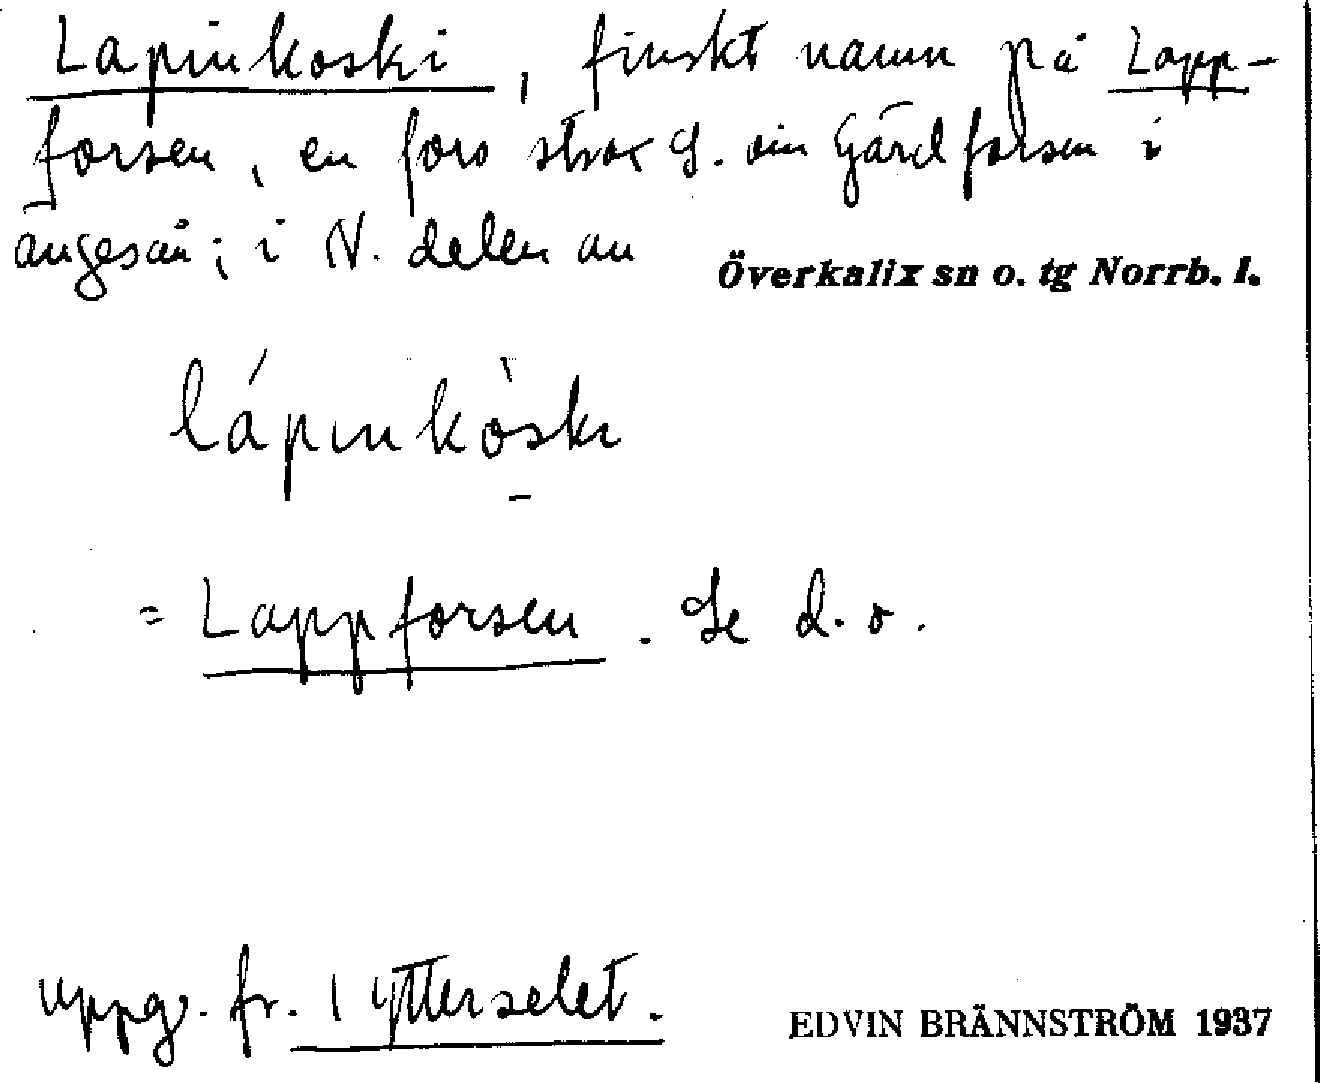 Lapinkoski, finskt namn på Lapp-
forsen, en fors strax S. om Gärdforsen i
ängesån; i N. delen av
Överkalix sn o. tg Norrb. l.
lápinkòski
= Lappforsen. Se d. o.
uppg. fr. 1 ytterselet.
EDVIN BRÄNNSTRÖM 1937